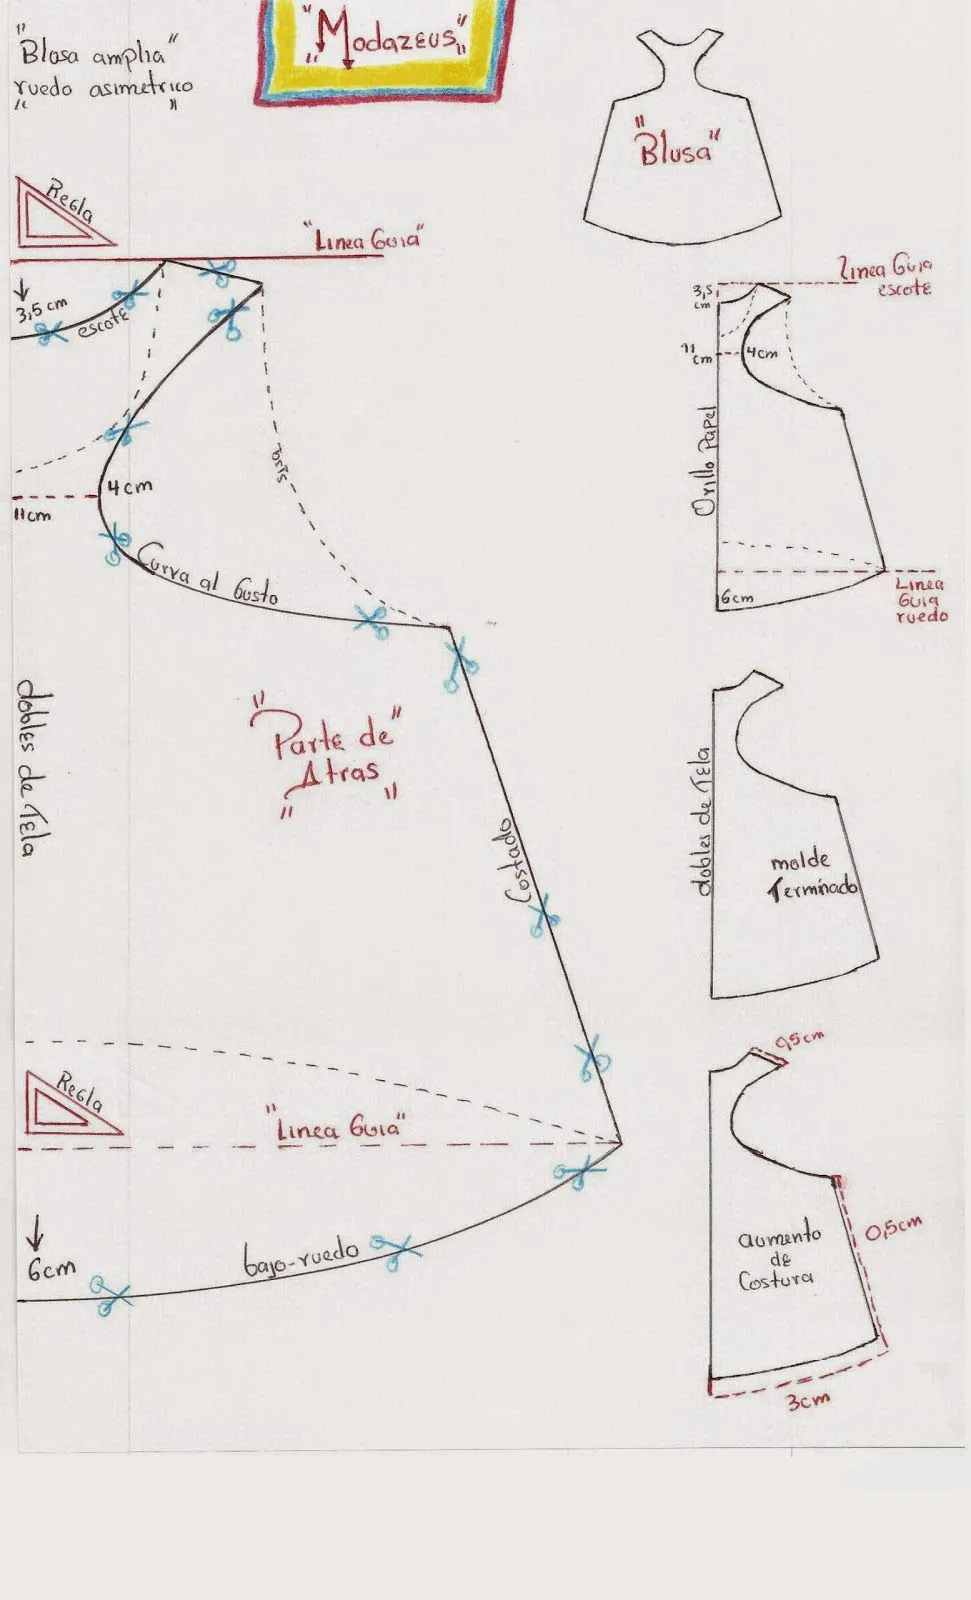 "Blusa amplia"
ruedo asimetrico
" "
"Modazeus"
"Blusa"
Regla
"Linea Guia"
3,5 cm
escote
4cm
11cm
Curva al Gusto
sisa
dobles de Tela
"Parte de"
"Atras"
Costado
Regla
"Linea Guia"
6cm
bajo-ruedo
Linea Guia
escote
3,5
cm
11
cm
4cm
Orillo Papel
6cm
Linea
Guia
ruedo
dobles de Tela
molde
Terminado
0,5cm
aumento
de
Costura
0,5cm
3cm